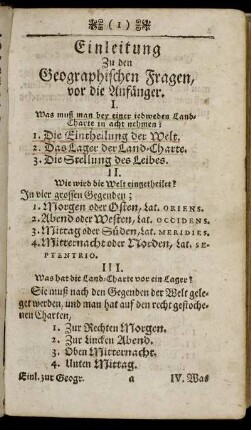 (1)
Einleitung
Zu den
Geographischen Fragen,
vor die Anfänger.
I.
Was muß man bey einer iedweden Land-
Charte in acht nehmen?
1. Die Eintheilung der Welt.
2. Das Lager der Land-Charte.
3. Die Stellung des Leibes.
II.
Wie wird die Welt eingetheilet?
In vier grossen Gegenden;
1. Morgen oder Osten, Lat. ORIENS.
2. Abend oder Westen, Lat. OCCIDENS.
3. Mittag oder Süden, Lat. MERIDIES.
4. Mitternacht oder Norden, Lat. SE-
PTENTRIO.
III.
Was hat die Land-Charte vor ein Lager?
Sie muß nach den Gegenden der Welt gele-
get werden, und man hat auf den recht gestoche-
nen Charten,
1. Zur Rechten Morgen.
2. Zur Lincken Abend.
3. Oben Mitternacht.
4. Unten Mittag.
Einl. zur Geogr. a IV. Was